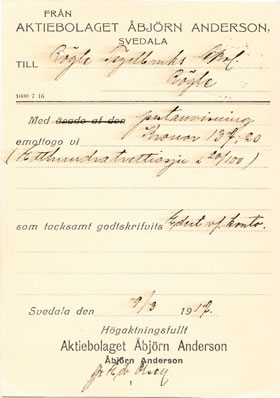 FRÅN
AKTIEBOLAGET ÅBJÖRN ANDERSON,
SVEDALA
TILL Rögle Tegelbruks
Rögle
1000 7 16
Med postanvisning
emottogo vi Kronor 137,20
(Etthundratrettiosju 20/100)
som tacksamt godtskrifvits Edert konto.
Svedala den 9/3 1917.
Högaktningsfullt
Aktiebolaget Åbjörn Anderson
Åbjörn Anderson